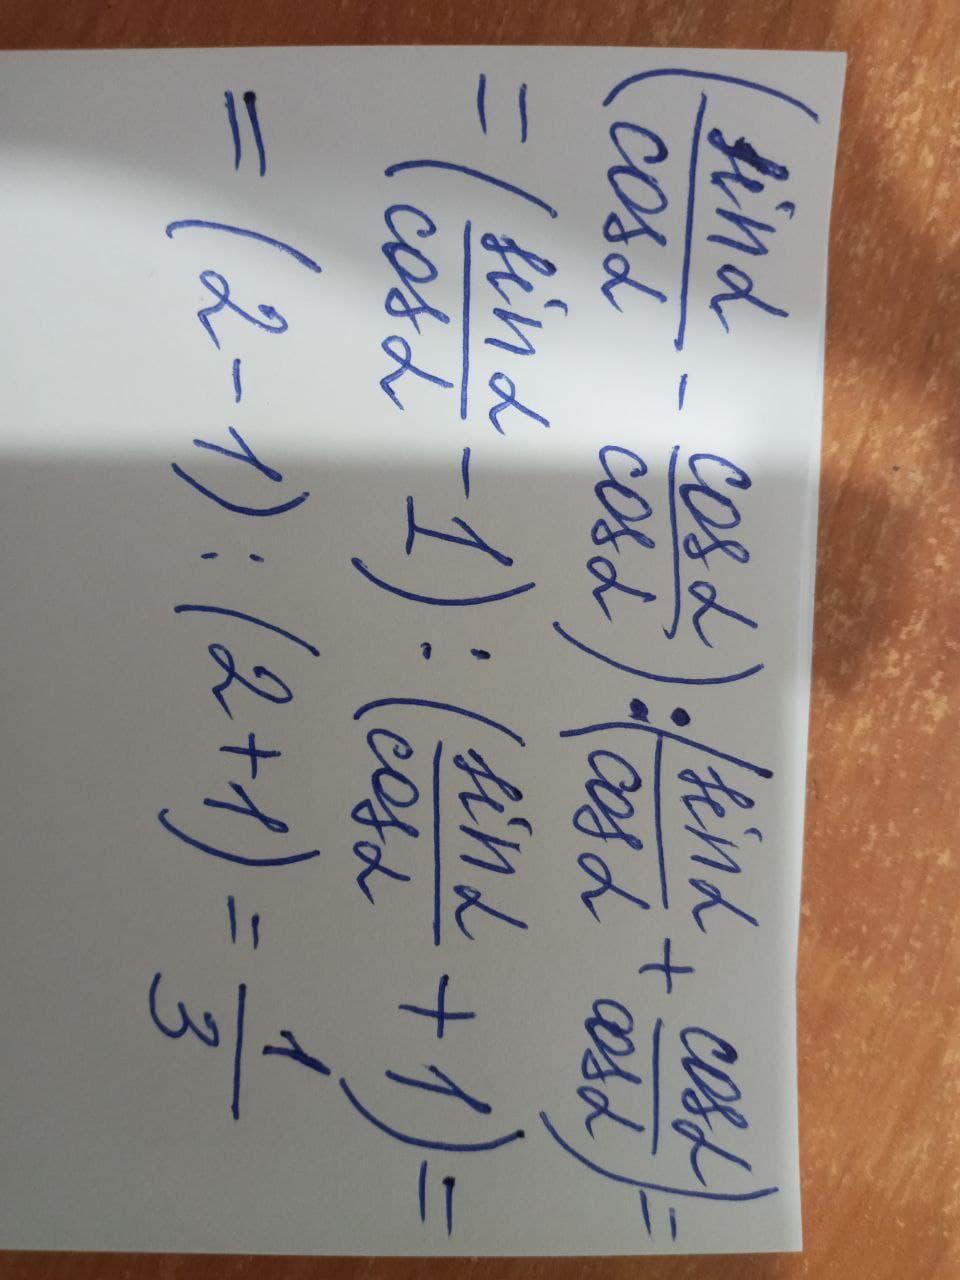 (sin α/cos α - cos α/cos α) : (sin α/cos α + cos α/cos α) =
= (sin α/cos α - 1) : (sin α/cos α + 1) =
= (2 - 1) : (2 + 1) = 1/3